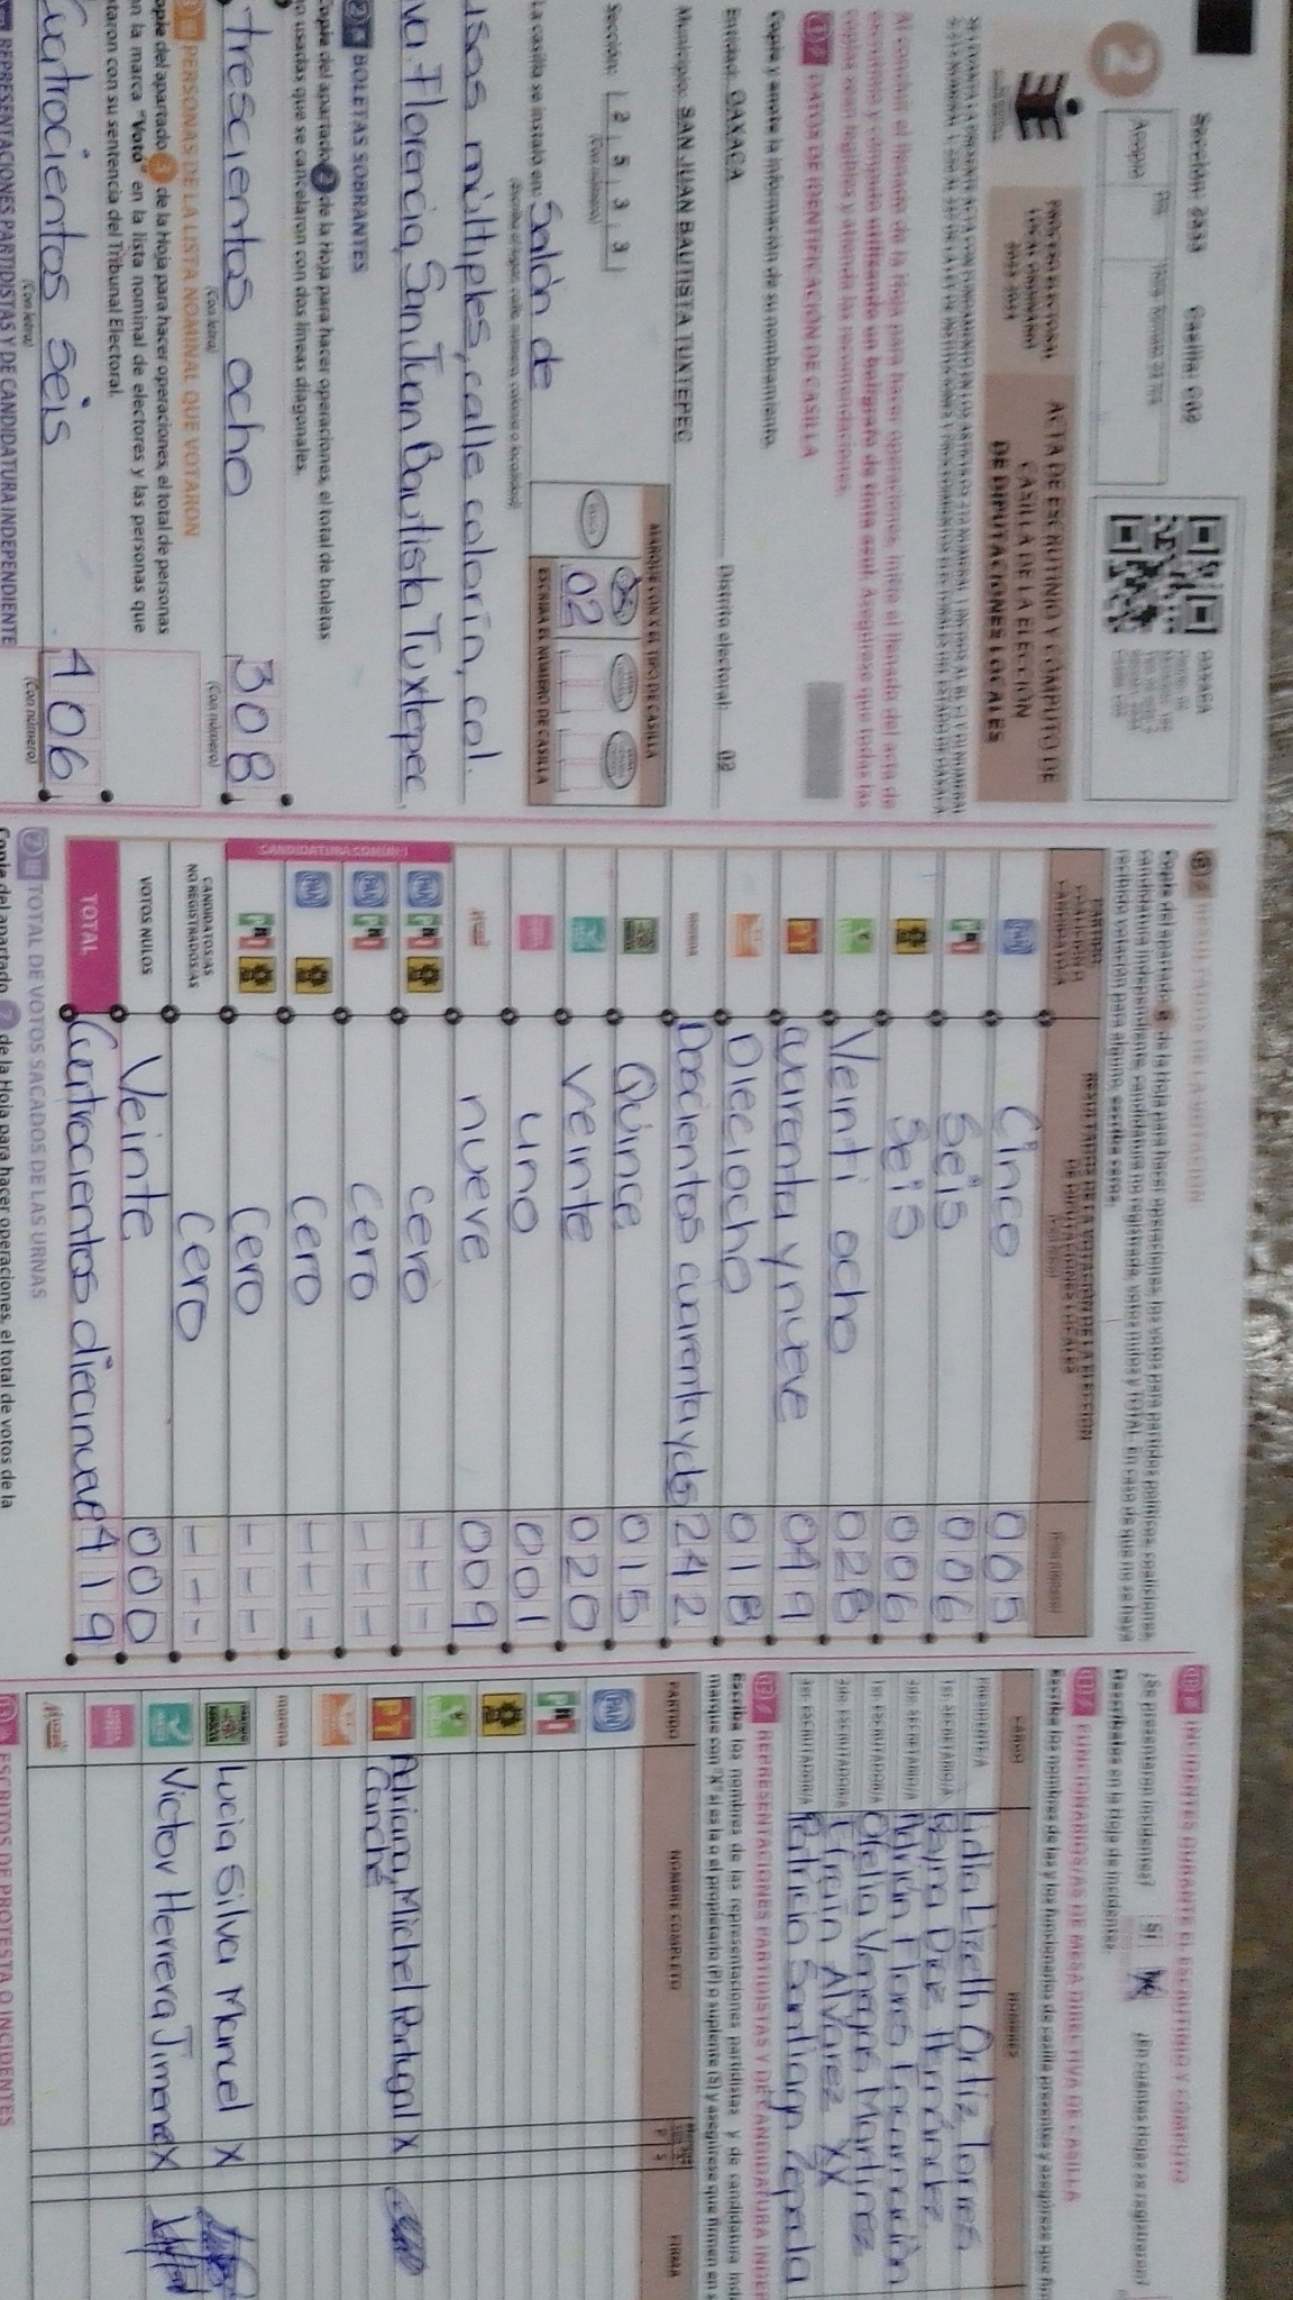 Sección: 2533 Casilla: C02
OAXACA
2
Acopio
PROCESO ELECTORAL
LOCAL ORDINARIO
2023-2024
ACTA DE ESCRUTINIO Y CÓMPUTO DE
CASILLA DE LA ELECCIÓN
DE DIPUTACIONES LOCALES
Al concluir el llenado de la Hoja para hacer operaciones, inicie el llenado del acta de
escrutinio y cómputo utilizando un bolígrafo de tinta azul. Asegúrese que todas las
copias sean legibles y atienda las recomendaciones.
1 DATOS DE IDENTIFICACIÓN DE CASILLA
Copie y anote la información de su nombramiento.
Entidad: OAXACA Distrito electoral: 02
Municipio: SAN JUAN BAUTISTA TUXTEPEC
Sección: 2 5 3 3
(Con número)
MARQUE CON X EL TIPO DE CASILLA
ESCRIBA EL NÚMERO DE CASILLA
02
La casilla se instaló en: Salón de
(Escriba el lugar, calle, número, colonia o localidad)
usos múltiples, calle colorín, col.
va. Florencia, San Juan Bautista Tuxtepec.
2 BOLETAS SOBRANTES
Copie del apartado 2 de la Hoja para hacer operaciones, el total de boletas
no usadas que se cancelaron con dos líneas diagonales.
trescientos ocho 308
(Con letra) (Con número)
3 PERSONAS DE LA LISTA NOMINAL QUE VOTARON
opie del apartado 3 de la Hoja para hacer operaciones, el total de personas
on la marca "Votó" en la lista nominal de electores y las personas que
otaron con su sentencia del Tribunal Electoral.
Cuatrocientos seis 406
(Con letra) (Con número)
REPRESENTACIONES PARTIDISTAS Y DE CANDIDATURA INDEPENDIENTE
RESULTADOS DE LA VOTACIÓN
Copie del apartado 6 de la Hoja para hacer operaciones, los votos para partidos políticos, coaliciones,
candidatura independiente, candidatura no registrada, votos nulos y TOTAL. En caso de que no se haya
recibido votación para alguno, escriba ceros.
RESULTADOS DE LA VOTACIÓN DE LA ELECCIÓN
DE DIPUTACIONES LOCALES
PAN Cinco 005
PRI Seis 006
Seis 006
Veinti ocho 028
PT cuarenta y nueve 049
Dieciocho 018
morena Doscientos cuarenta y dos 242
Quince 015
veinte 020
uno 001
nueve 009
CANDIDATURA COMÚN
PAN PRI cero - - -
PAN PRI cero - - -
PAN Cero - - -
PRI Cero - - -
CANDIDATOS/AS
NO REGISTRADOS/AS Cero - - -
VOTOS NULOS Veinte 000
TOTAL Cuatrocientos diecinueve 419
7 TOTAL DE VOTOS SACADOS DE LAS URNAS
Copie del apartado 7 de la Hoja para hacer operaciones, el total de votos de la
INCIDENTES DURANTE EL ESCRUTINIO Y CÓMPUTO
¿Se presentaron incidentes? Sí No ¿En cuántas Hojas se registraron?
Descríbalos en la Hoja de incidentes.
FUNCIONARIOS/AS DE MESA DIRECTIVA DE CASILLA
Escriba los nombres de las y los funcionarios de casilla presentes y asegúrese que fir
CARGO NOMBRES
PRESIDENTE/A Lidia Lizeth Ortiz Torres
1er. SECRETARIO/A Dayna Dice Hernández
2do. SECRETARIO/A Adrián Flores Encarnación
1er. ESCRUTADOR/A Ofelia Vargas Martinez
2do. ESCRUTADOR/A Efraín Alvarez XX
3er. ESCRUTADOR/A Patricia Santiago Zepeda
REPRESENTACIONES PARTIDISTAS Y DE CANDIDATURA INDEP
Escriba los nombres de las representaciones partidistas y de candidatura ind
marque con "X" si es la o el propietario (P) o suplente (S) y asegúrese que firmen en s
PARTIDO NOMBRE COMPLETO P S FIRMA
PAN
PRI
PT Adriana Michel Portugal X
Canché
morena
Lucia Silva Manuel X
Victor Herrera Jimenez X
ESCRITOS DE PROTESTA O INCIDENTES